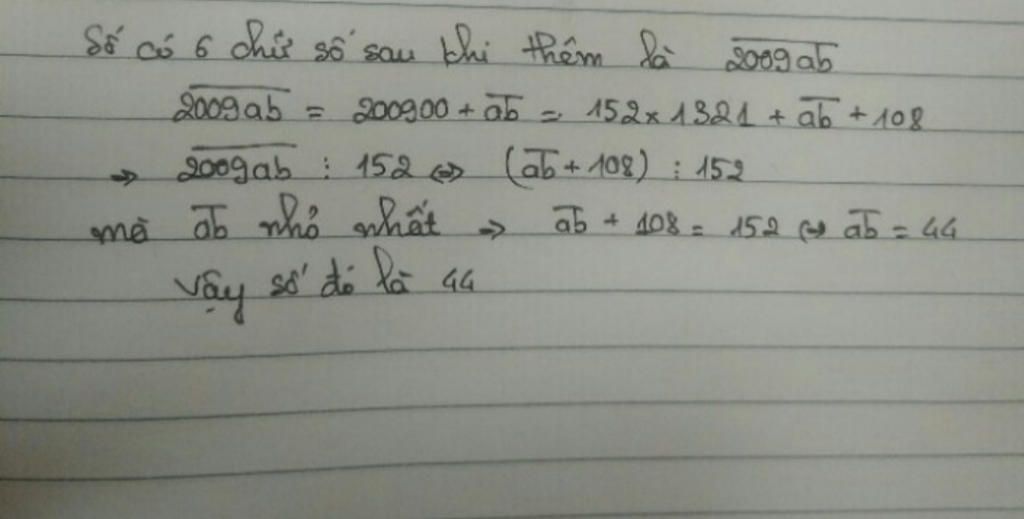 Số có 6 chữ số sau khi thêm là \overline{2009ab}
\overline{2009ab} = 200900 + \overline{ab} = 152 x 1321 + \overline{ab} + 108
→ \overline{2009ab} ⋮ 152 ⇔ (\overline{ab} + 108) ⋮ 152
mà \overline{ab} nhỏ nhất → \overline{ab} + 108 = 152 ⇔ \overline{ab} = 44
Vậy số đó là 44